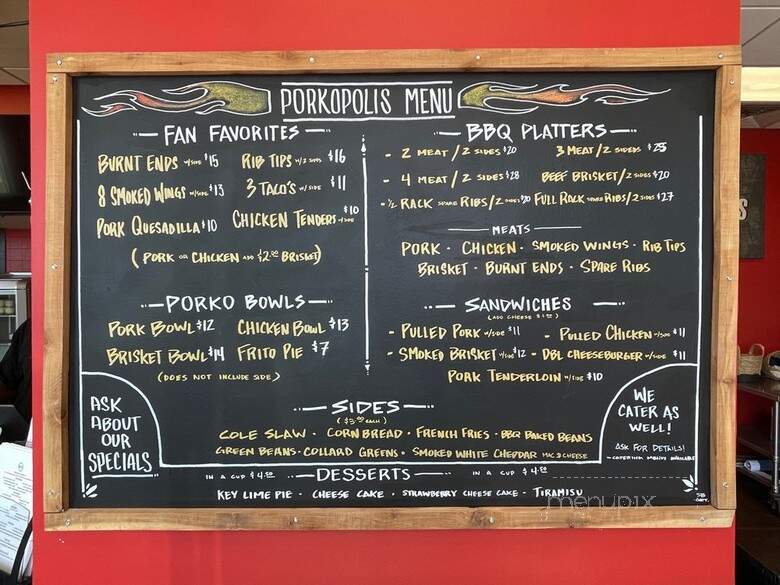 PORKOPOLIS MENU
FAN FAVORITES
BURNT ENDS W/SIDE $15
RIB TIPS W/2 SIDES $16
8 SMOKED WINGS W/SIDE $13
3 TACO'S W/SIDE $11
PORK QUESADILLA $10
CHICKEN TENDERS W/SIDE $10
(PORK OR CHICKEN ADD $2.00 BRISKET)
PORKO BOWLS
PORK BOWL $12
CHICKEN BOWL $13
BRISKET BOWL $14
FRITO PIE $7
(DOES NOT INCLUDE SIDE)
BBQ PLATTERS
- 2 MEAT/2 SIDES $20
3 MEAT/2 SIDES $25
- 4 MEAT/2 SIDES $28
BEEF BRISKET/2 SIDES $20
- ½ RACK SPARE RIBS/2 SIDES $20
FULL RACK SPARE RIBS/2 SIDES $27
MEATS
PORK · CHICKEN · SMOKED WINGS · RIB TIPS
BRISKET · BURNT ENDS · SPARE RIBS
SANDWICHES
(ADD CHEESE $1.00)
- PULLED PORK W/SIDE $11
- PULLED CHICKEN W/SIDE $11
- SMOKED BRISKET W/SIDE $12
- DBL CHEESEBURGER W/SIDE $11
PORK TENDERLOIN W/SIDE $10
SIDES
($3.00 EACH)
COLE SLAW · CORN BREAD · FRENCH FRIES · BBQ BAKED BEANS
GREEN BEANS · COLLARD GREENS · SMOKED WHITE CHEDDAR MAC & CHEESE
DESSERTS
IN A CUP $4.50
IN A CUP $4.50
KEY LIME PIE · CHEESE CAKE · STRAWBERRY CHEESE CAKE · TIRAMISU
ASK
ABOUT
OUR
SPECIALS
WE
CATER AS
WELL!
ASK FOR DETAILS!
- CATERING MENU AVAILABLE
menupix